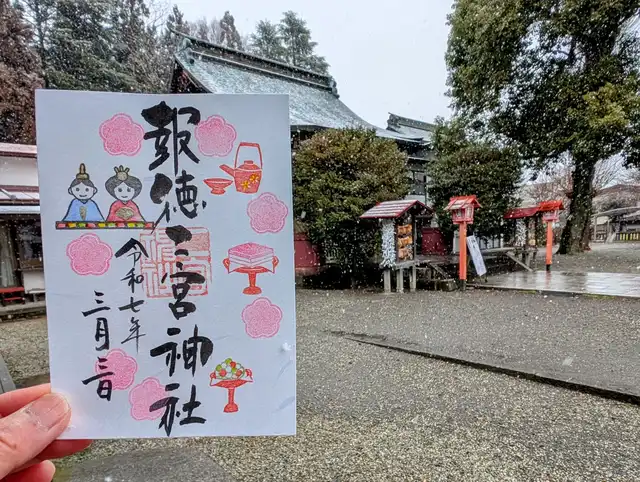 報徳二宮神社
令和七年
三月三日